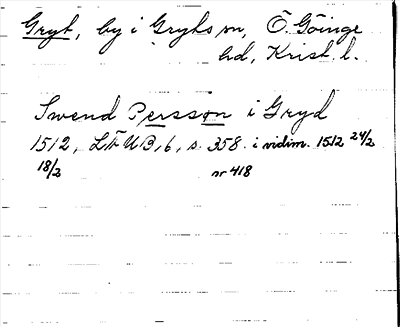 Gryt, by i Gryts sn, Ö. Göinge
hd, Krist. l.
Swend Persson i Gryd
1512, LÄUB, 6, s. 358. i vidim. 1512 24/2
18/2 nr 418